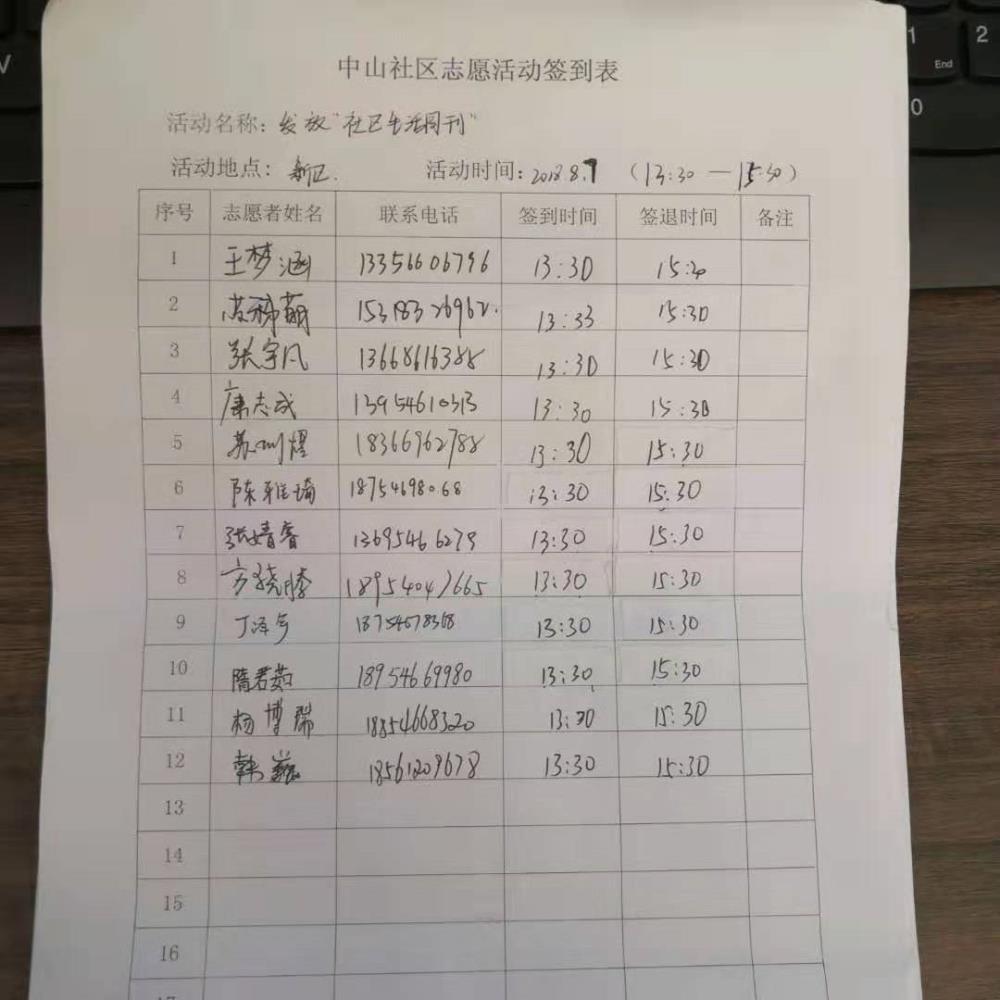 中山社区志愿活动签到表
活动名称: 发放"社区生活周刊"
活动地点: 新区. 活动时间: 2018.8.7 (13:30 — 15:30)
序号 志愿者姓名 联系电话 签到时间 签退时间 备注
1 王梦涵 13356606796 13:30 15:30
2 15318326962. 13:33 15:30
3 张宇凡 13668616388 13:30 15:30
4 康志成 13954610313 13:30 15:30
5 18366962788 13:30 15:30
6 陈雅琦 18754698068 13:30 15:30
7 张婧睿 13695466279 13:30 15:30
8 方晓腾 18954047665 13:30 15:30
9 丁泽宇 18754678368 13:30 15:30
10 隋君茹 18954669980 13:30 15:30
11 杨博瑞 18854668320 13:30 15:30
12 韩 18561209678 13:30 15:30
13
14
15
16
17
End
1
2
0
V